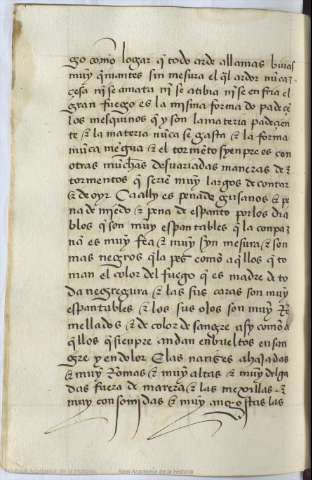 go como logar q̃ todo arde allamas biuas
muy q̃mantes sin mesura el q̃l ardor nũcaz
çesa nj se amata nj se atibia nj se enfria el
gran fuego es la misma forma do padeçẽ
los mesquinos q̃ y son la materia padecien
te & la materia nũca se gasta & la forma
nũca mẽgua & el tormẽto syenpre es con
otras muchas desuariadas maneras de
tormentos q̃ serie muy largos de contar
& de oyr Ca ally es pena de gusanos & pe
na de mjedo & pena de espanto por los dia
blos q̃ son muy espantables q̃ la conpaz
na es muy fea & muy syn mesura & son
mas negros q̃ la peç como aq̃llos q̃ to
man el color del fuego q̃ es madre de to
da negregura & las sus caras son muy
espantables & los sus ojos son muy
mellados & de color de sangre asy como a
q̃llos q̃ sienpre andan enbueltos en san
gre y en dolor E las narizes ahajadas
& muy Romas & muy altas & muy delga
das fuera de manera & las mexillas
muy consomidas & muy angostas las
Real Academia de la Historia
Real Academia de la Historia